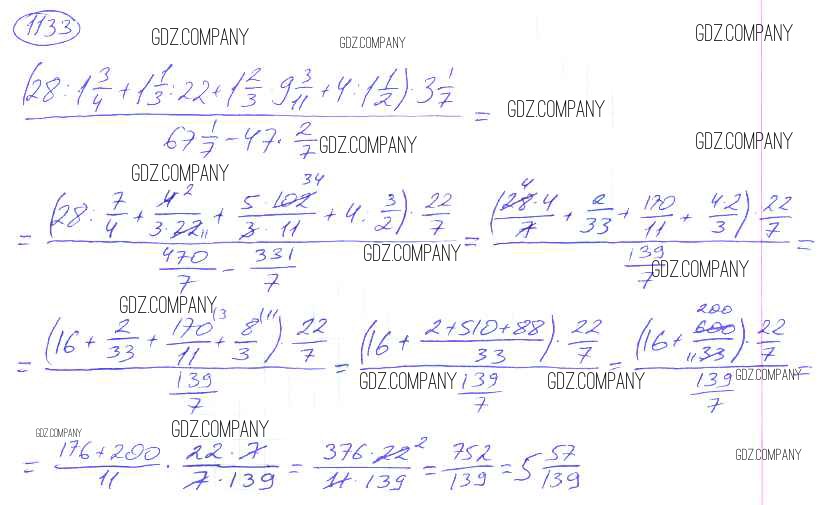 1133
GDZ.COMPANY GDZ.COMPANY GDZ.COMPANY
(28 : 1 3/4 + 1 1/3 : 22 + 1 2/3 · 9 3/11 + 4 : 1 1/2) · 3 1/7
67 1/7 - 47 · 2/7 =
GDZ.COMPANY GDZ.COMPANY GDZ.COMPANY
GDZ.COMPANY
= (28 : 7/4 + 4 2/3·22 11 + 5·102 34/3·11 + 4 : 3/2) · 22/7
470/7 - 331/7
= (28 4·4/7 + 2/33 + 170/11 + 4·2/3) · 22/7
139/7 =
GDZ.COMPANY GDZ.COMPANY
GDZ.COMPANY
= (16 + 2/33 + 170/11 (3 + 8/3 (11) · 22/7
139/7
= (16 + 2+510+88/33) · 22/7
139/7
= (16 + 600 200/33 11) · 22/7
139/7 =
GDZ.COMPANY GDZ.COMPANY GDZ.COMPANY
GDZ.COMPANY GDZ.COMPANY GDZ.COMPANY
= 176+200/11 · 22·7/7·139 = 376·22 2/11·139 = 752/139 = 5 57/139